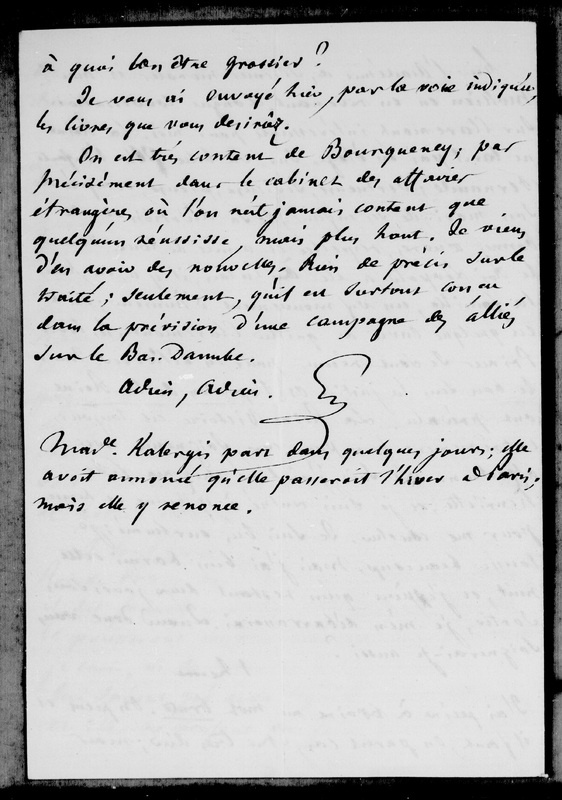 à quoi bon être grossier ?
Je vous ai envoyé hier, par la voie indiquée,
les livres que vous desirez.
On est très content de Bourqueney ; pas
précisément dans le cabinet des affaires
étrangères où l'on n'est jamais content que
quelqu'un réussisse, mais plus haut. Je viens
d'en avoir des nouvelles. Rien de précis sur le
traité ; seulement, qu'il est surtout conçu
dans la prévision d'une campagne des alliés
sur le Bas-Danube.
Adieu, Adieu.
Made. Kalergis part dans quelques jours ; elle
avoit annoncé qu'elle passeroit l'hiver à Paris ;
mais elle y renonce.